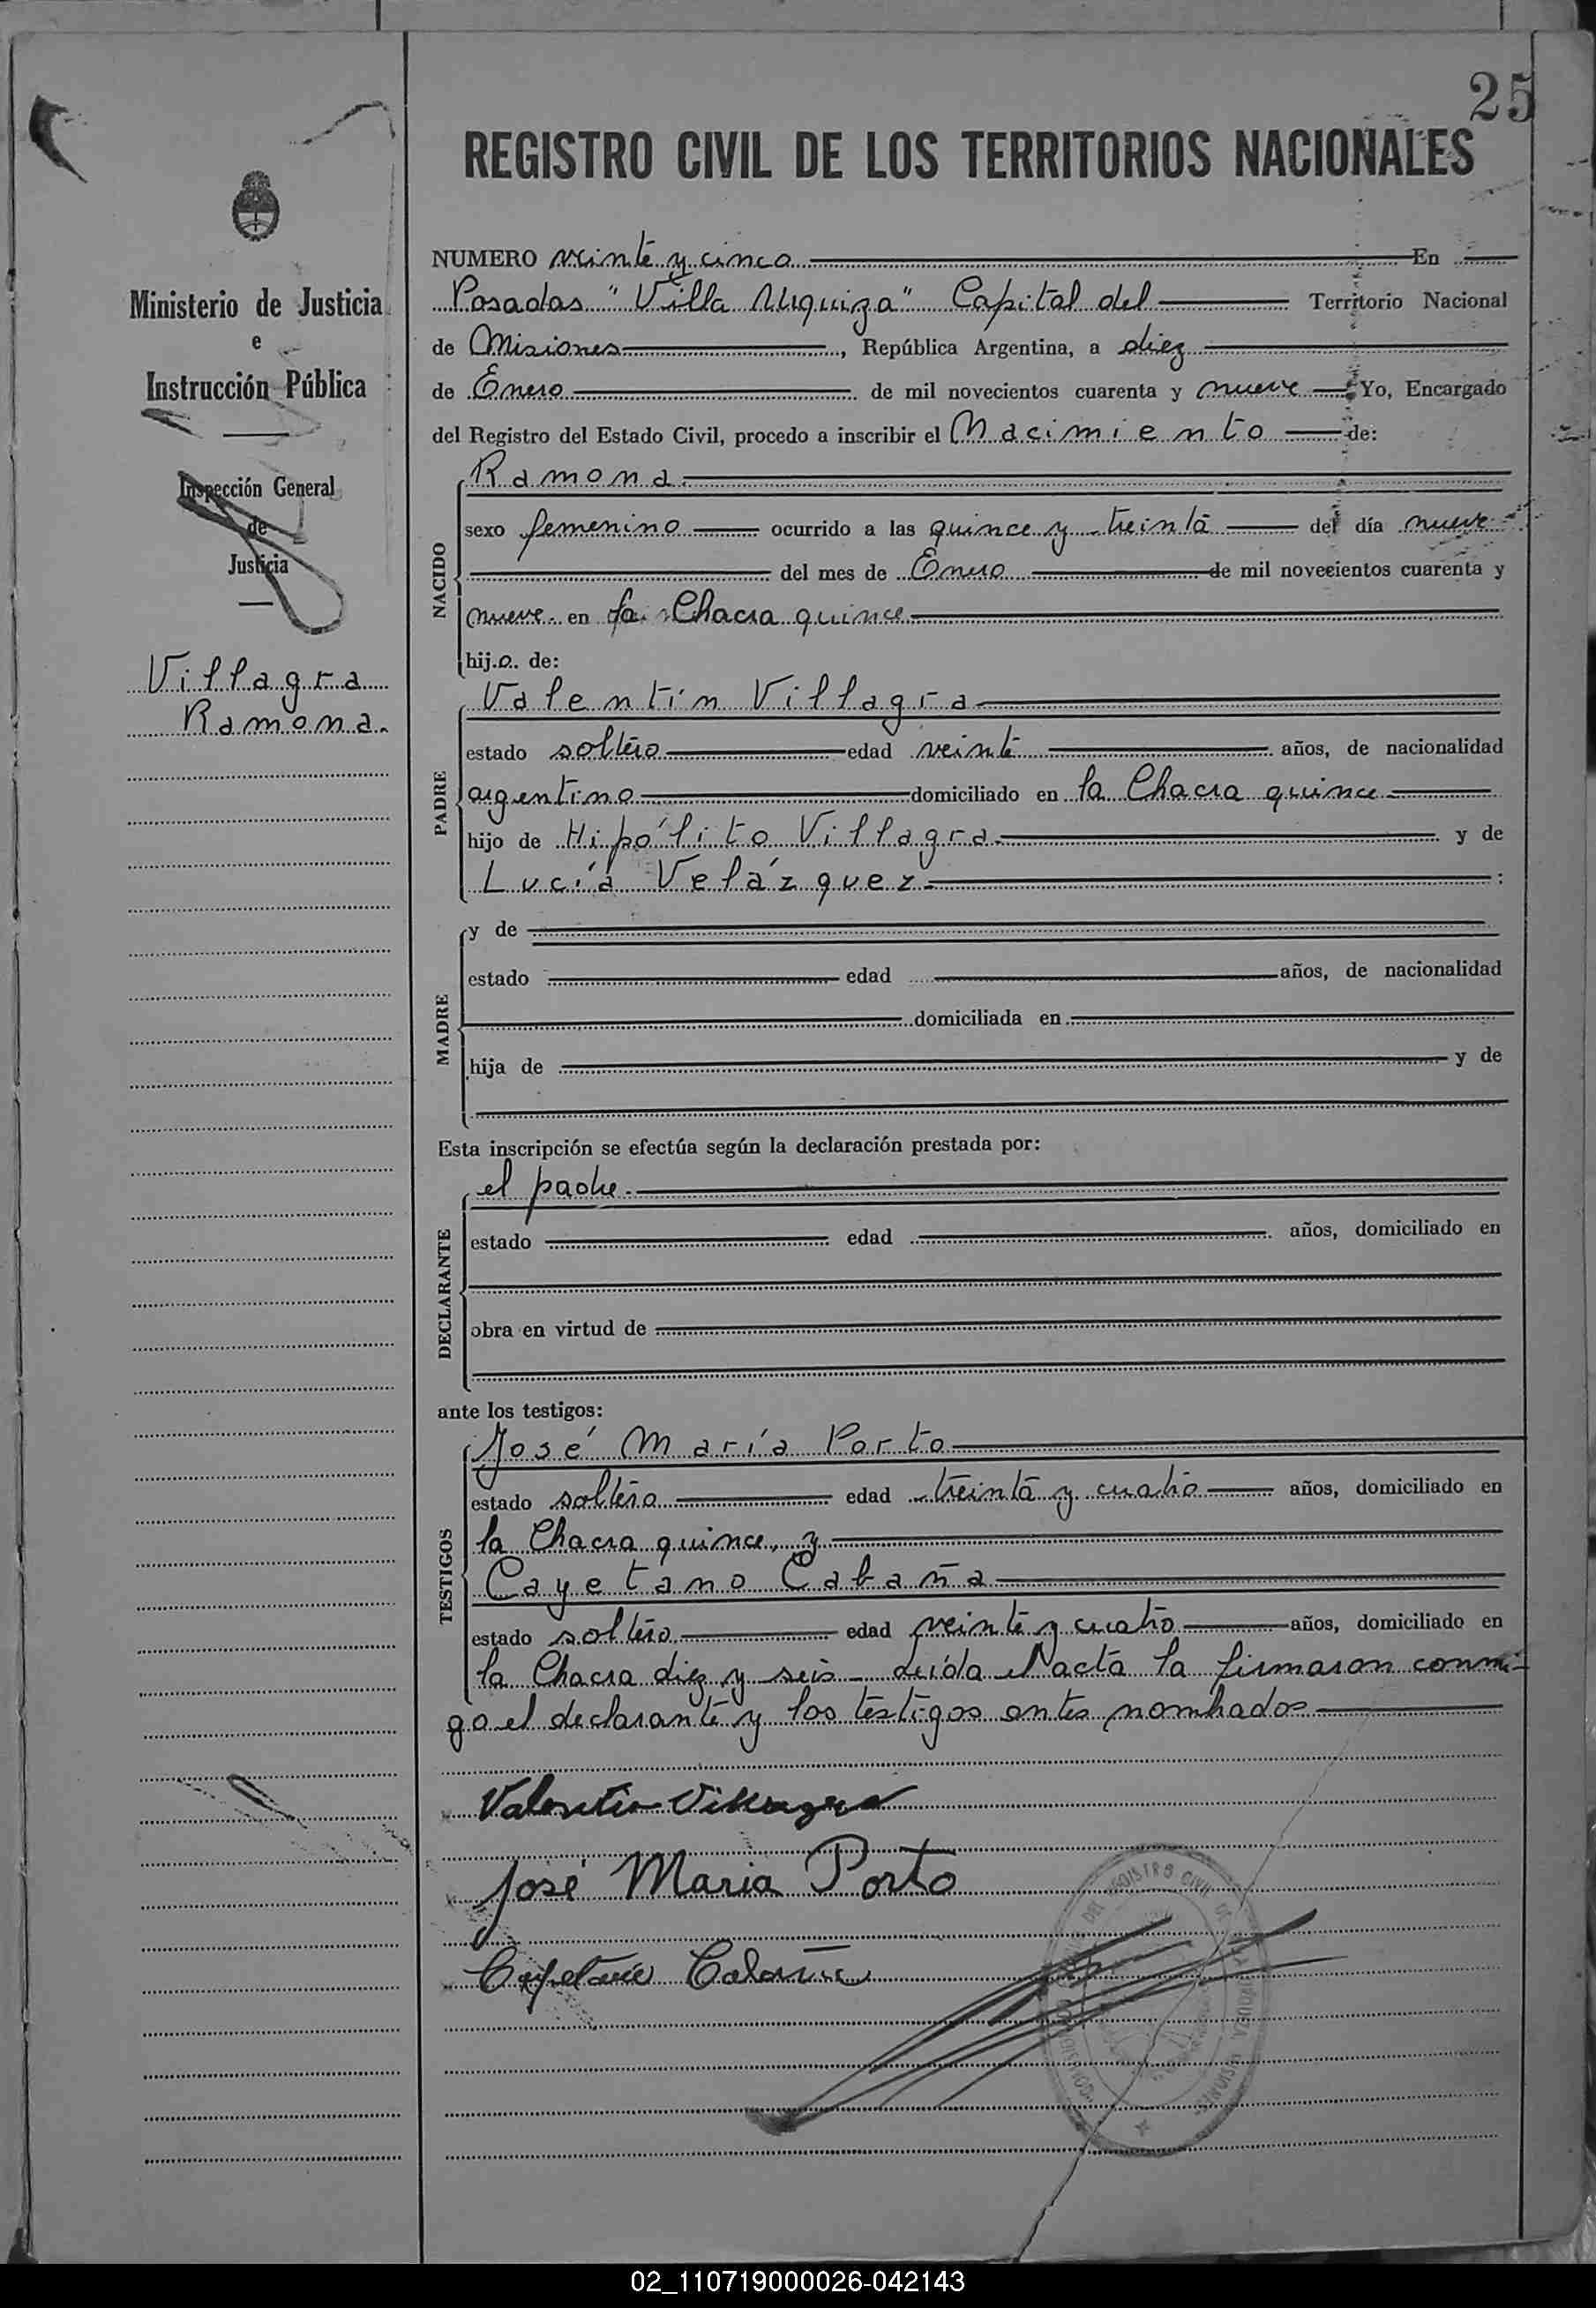 25
REGISTRO CIVIL DE LOS TERRITORIOS NACIONALES
Ministerio de Justicia
e
Instrucción Pública
Inspección General
de
Justicia
Villagra
Ramona.
NUMERO veinte y cinco En
Posadas "Villa Urquiza" Capital del Territorio Nacional
de Misiones, República Argentina, a diez
de Enero de mil novecientos cuarenta y nueve Yo, Encargado
del Registro del Estado Civil, procedo a inscribir el Nacimiento de:
NACIDO
Ramona.
sexo femenino ocurrido a las quince y treinta del día nueve
del mes de Enero de mil novecientos cuarenta y
nueve en la Chacra quince
hij.a. de:
PADRE
Valentín Villagra
estado soltero edad veinte años, de nacionalidad
argentino domiciliado en la Chacra quince
hijo de Hipólito Villagra. y de
Lucía Velázquez. :
MADRE
y de
estado edad años, de nacionalidad
domiciliada en
hija de y de
Esta inscripción se efectúa según la declaración prestada por:
DECLARANTE
el padre.
estado edad años, domiciliado en
obra en virtud de
ante los testigos:
TESTIGOS
José María Porto
estado soltero edad treinta y cuatro años, domiciliado en
la Chacra quince, y
Cayetano Cabaña
estado soltero edad veinte y cuatro años, domiciliado en
la Chacra diez y seis Leída el acta la firmaron conmi-
go el declarante y los testigos antes nombrados
Valentin Villagra
José Maria Porto
Cayetano Cabaña
REGISTRO CIVIL
URQUIZA MISIONES
02_110719000026-042143